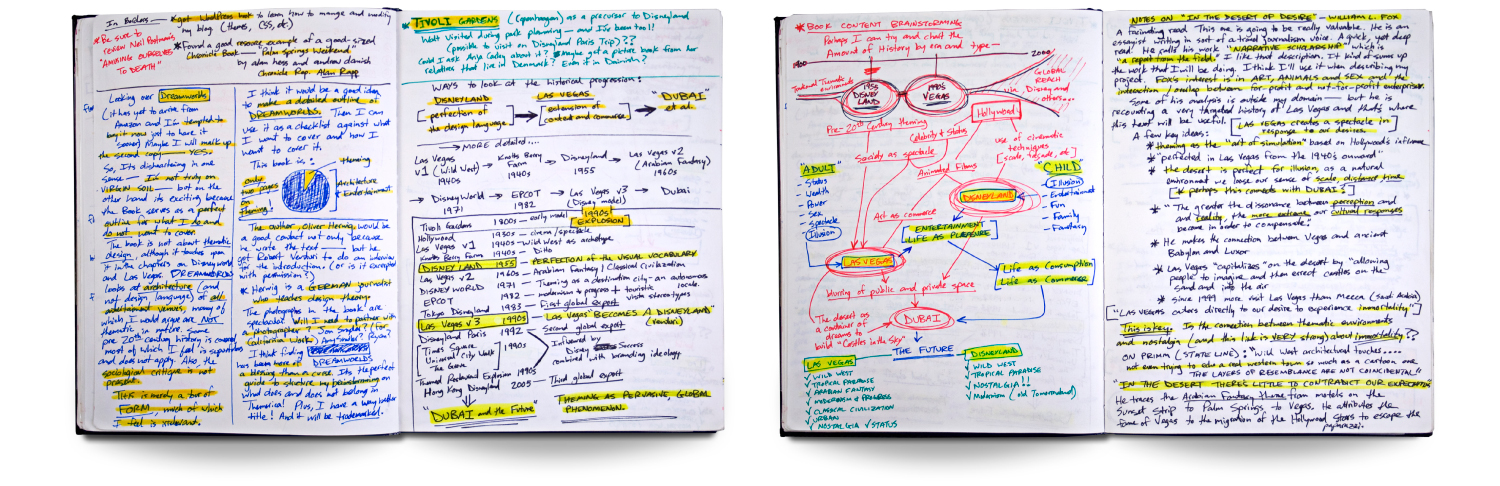 In Borders —
my blog (themes, CSS, etc)
* Be sure to
review Neil Postman's
"AMUSING OURSELVES
TO DEATH"
* Found a good example of a good-sized
Chronicle Book — "Palm Springs Weekend"
by alan hess and andrew danish
Chronicle Rep. Alan Rapp
Looking over Dreamworlds
(it has yet to arrive from
Amazon and I'm tempted to
buy it now just to have it
sooner) Maybe I will mark up
the second copy — YES.
So, it's disheartening in one
sense — I'm not truly on
VIRGIN SOIL — but on the
other hand its exciting because
the Book serves as a perfect
outline for what I do and
do not want to cover.
The book is not about thematic
design, although it touches upon
it in the chapters on Disneyworld
and Las Vegas. DREAMWORLDS
looks at architecture (and
not design language) of all
additional venues, many of
which I would argue are NOT
thematic in nature. Some
pre 20th century history is covered
most of which I feel is
and does not apply. Also the
sociological critique is not
present.
THIS is merely a bit of
FORM much of which
I feel is irrelevant.
I think it would be a good idea
to make a detailed outline of
DREAMWORLDS. Then I can
use it as a checklist against what
I want to cover and how I
want to cover it.
This book is:
only
two pages
on
Theming!
theming
Architecture
+ Entertainment
The author, Oliver Herwig, would be
a good contact not only because
he wrote the text — but he
got Robert Venturi to do an interview
for the introduction. (or is it excerpted
w/ permission?)
* Herwig is a GERMAN journalist
who studies design theory.
The photographs in the book are
spectacular. Will I need to partner with
a photographer? Jon Snyder? (for
California Work) Amy Snyder? Ryan?
I think finding
DREAMWORLDS
has been more of
a blessing than a curse. It's the perfect
guide to structure my brainstorming on
what does and does not belong in
Themerica! Plus, I have a way better
title! And it will be trademarked.
* TIVOLI GARDENS (Copenhagen) as a precursor to Disneyland
Walt visited during park planning — and I've been too!!
(possible to visit on Disneyland Paris Trip)??
Could I ask Anja Carley about it? Maybe get a picture book from her
relatives that live in Denmark? Even if in Danish?
WAYS to look at the historical progression:
DISNEYLAND
[perfection of
the design language]
LAS VEGAS
[extension of
context and commerce]
"DUBAI"
et al.
MORE detailed...
Las Vegas
v1 (Wild West)
1940s
Knotts Berry
Farm
1940s
Disneyland
1955
Las Vegas v2
(Arabian Fantasy)
1960s
Disney World
1971
EPCOT
1982
Las Vegas v3
(Disney model)
Dubai
Tivoli Gardens 1800s — early model
1990s
EXPLOSION
Hollywood 1930s — cinema/spectacle
Las Vegas v1 1940s — Wild West as archetype
Knotts Berry Farm 1940s — Ditto
DISNEYLAND 1955 — PERFECTION OF THE VISUAL VOCABULARY
Las Vegas v2 1960s — Arabian Fantasy / Classical Civilization
DISNEY WORLD 1971 — Theming as a destination city — an autonomous
locale.
EPCOT 1982 — modernism + progress + touristic
vista stereotypes
Tokyo Disneyland 1983 — First global export
Las Vegas v3 1990s — Las Vegas "BECOMES A DISNEYLAND"
(venturi)
Disneyland Paris 1992 — Second global export
Times Square
Universal City Walk
The Grove
1990s
Influenced by
Disney Success
combined with branding ideology
Themed Restaurant Explosion 1990s
Hong Kong Disneyland 2005 — Third global export
"DUBAI and the Future"
THEMING AS PERVASIVE, GLOBAL
PHENOMENON.
* BOOK CONTENT BRAINSTORMING
Perhaps I can try and chart the
Amount of History by era and type —
1900
2000
1955
DISNEY
LAND
1990s
VEGAS
GLOBAL
REACH
via Disney and
others...
Pre-20th Century theming
Hollywood
Celebrity + Status
Society as spectacle
Animated Films
use of cinematic
techniques
[scale, facade, etc]
"ADULT"
- Status
- Wealth
- Power
- Sex
- Spectacle
- Illusion
"CHILD"
- Illusion
- Entertainment
- Fun
- Family
- Fantasy
DISNEYLAND
Act as commerce
ENTERTAINMENT
LIFE AS PLEASURE
LAS VEGAS
Life as Consumption
Life as Commerce
blurring of public and private space
DUBAI
The desert as
a container of
dreams to
build "Castles in the Sky"
THE FUTURE
LAS VEGAS
✓ WILD WEST
✓ TROPICAL PARADISE
✓ ARABIAN FANTASY
✓ MODERNISM + PROGRESS
✓ CLASSICAL CIVILIZATION
✓ URBAN
✓ NOSTALGIA ✓ STATUS
DISNEYLAND
✓ WILD WEST
✓ TROPICAL PARADISE
✓ NOSTALGIA!!
✓ Modernism (old Tomorrowland)
NOTES ON "IN THE DESERT OF DESIRE" — WILLIAM L. FOX
A fascinating read. This one is going to be really valuable. He is an
essayist writing in sort of a travel journalism voice. A quick, yet deep
read. He calls his work "NARRATIVE SCHOLARSHIP" which is
"a report from the field." I like that description. It kind of sums up
the work that I will be doing. I think I'll use it when describing my
project. Fox's interest is in ART, ANIMALS and SEX and the
interaction/overlap between for profit and not-for-profit enterprises.
Some of his analysis is outside my domain — but he is
recounting a very themed history of Las Vegas and that's where
this text will be useful.
[LAS VEGAS creates a spectacle in
response to our desires.]
A few key ideas:
* theming as the "art of simulation" based on Hollywood's influence
"perfected in Las Vegas from the 1940's onward"
* the desert is perfect for illusion, as a natural
environment we loose our sense of scale, distance, time
[* perhaps this connects with DUBAI?]
* "The greater the dissonance between perception and
and reality, the more extreme our cultural responses
become in order to compensate."
* He makes the connection between Vegas and ancient
Babylon and Luxor
* Las Vegas "capitalizes" on the desert by "allowing
people to imagine and then erect castles on the
sand and into the air
* since 1999 more visit Las Vegas than Mecca (Saudi Arabia)
["LAS VEGAS caters directly to our desire to experience immortality"]
This is key. Is the connection between thematic environments
and nostalgia (and this link is VERY strong) about immortality??
ON PRIMM (STATE LINE): "Wild West architectural touches....
not even trying to edu a real western town so much as a cartoon one
THE LAYERS OF RESEMBLANCE ARE NOT COINCIDENTAL"
"IN THE DESERT THERE'S LITTLE TO CONTRADICT OUR EXPECTATIONS"
He traces the Arabian Fantasy theme from motels on the
Sunset Strip to Palm Springs to Vegas. He attributes the
fame of Vegas to the migration of the Hollywood Stars to escape the
paparazzi.